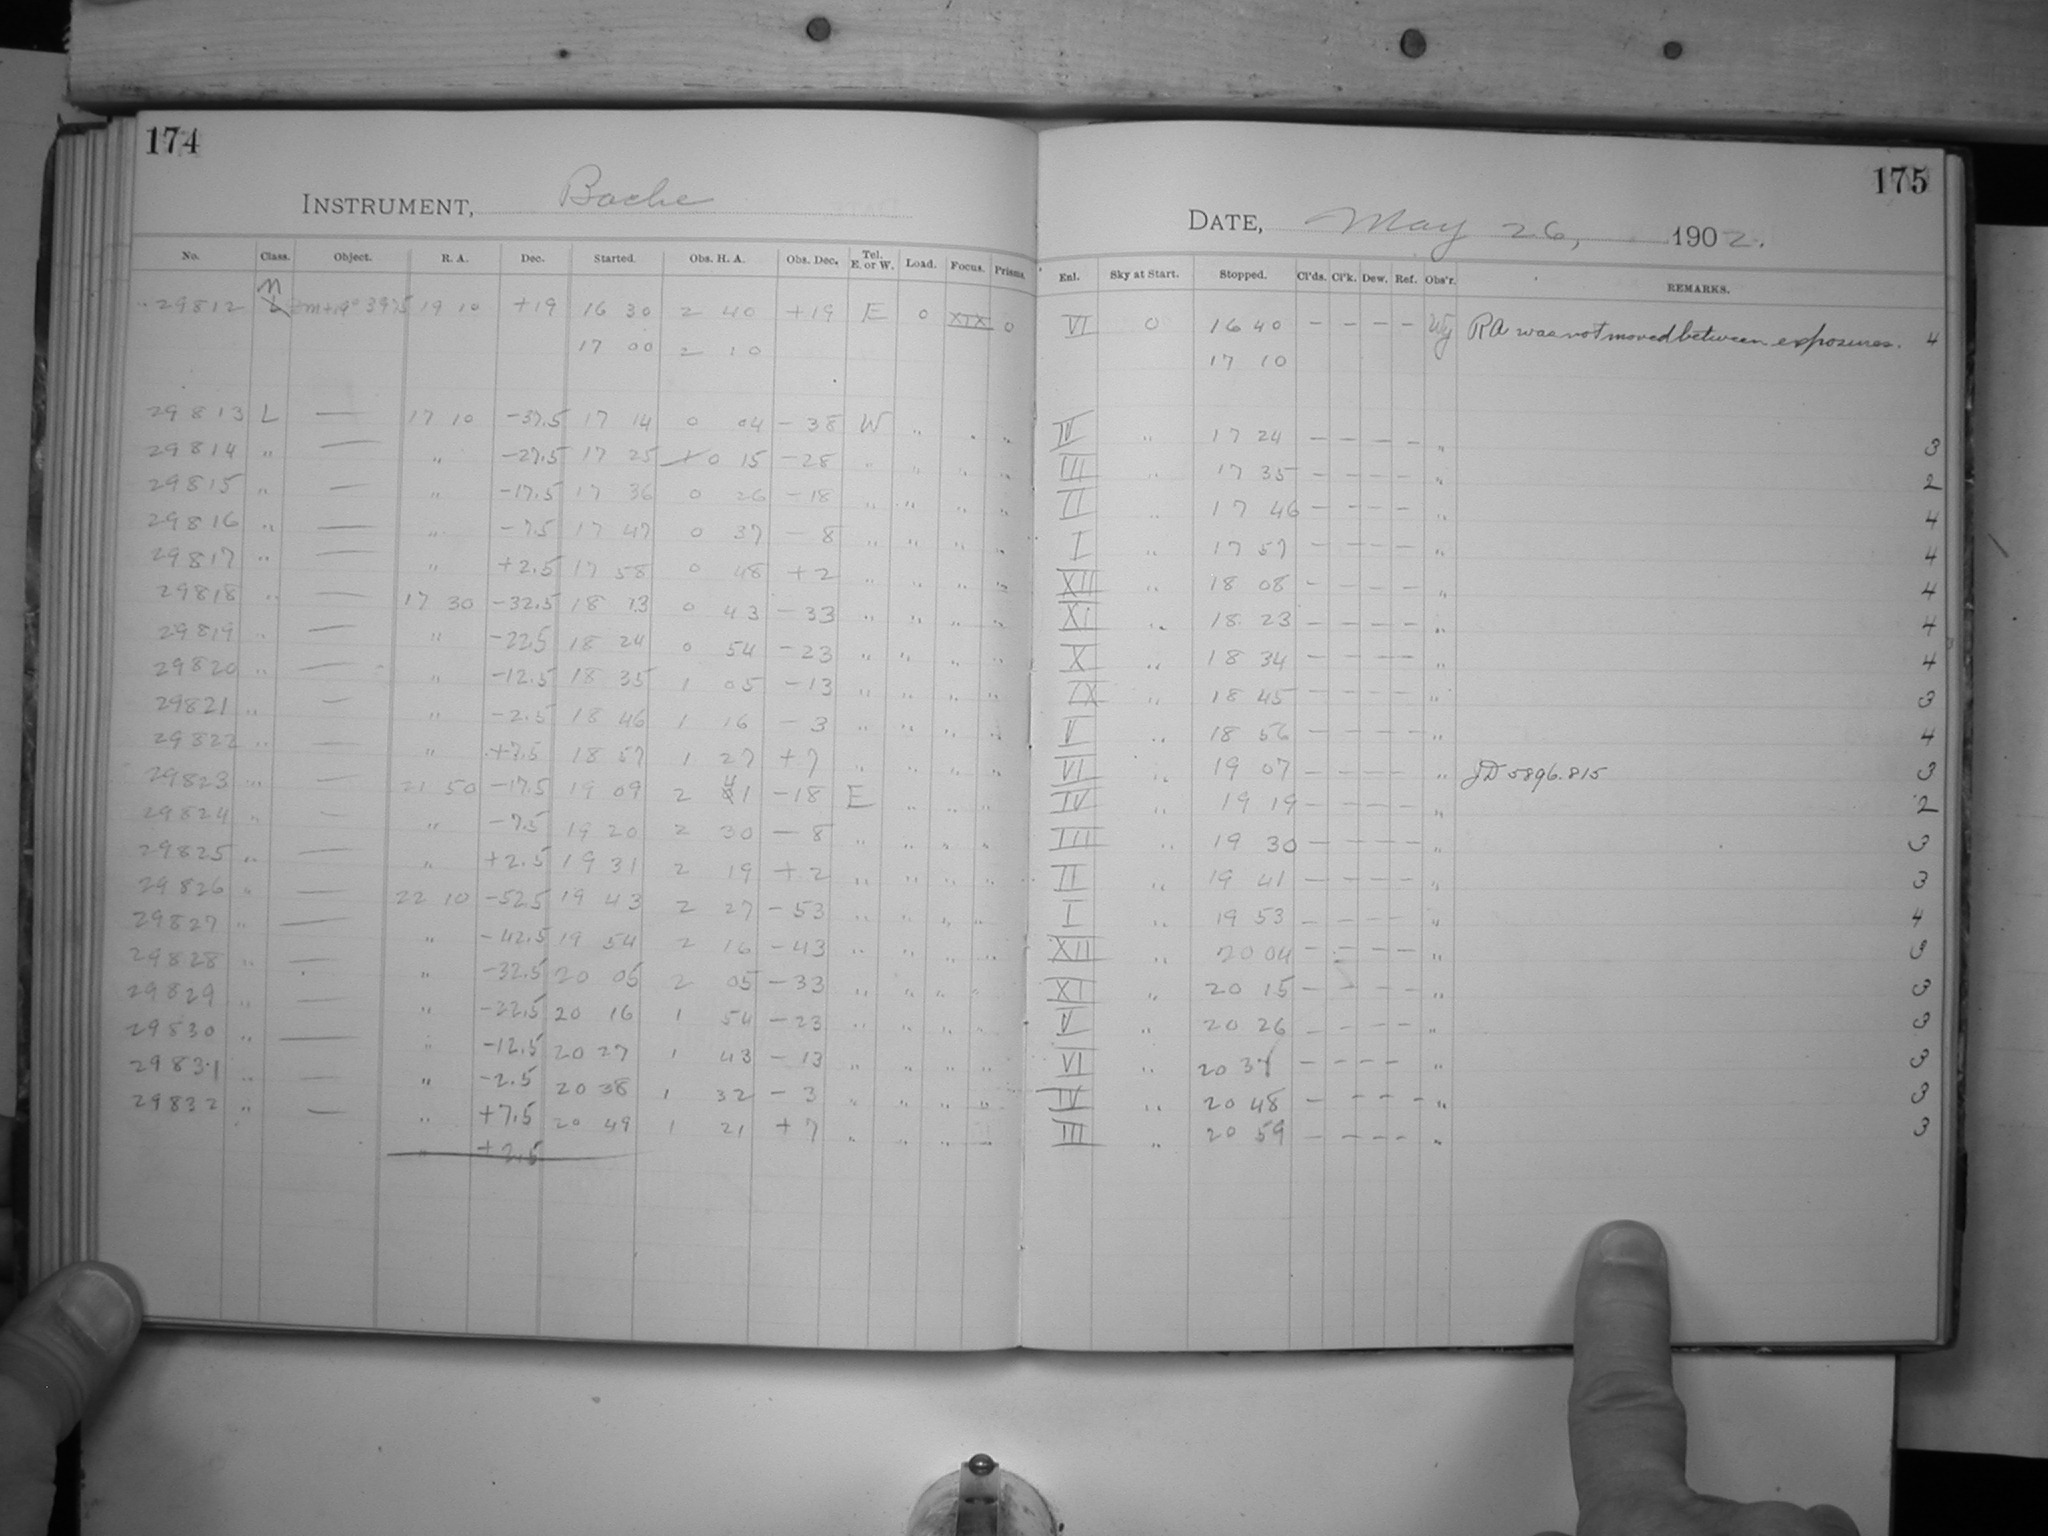 174
INSTRUMENT, Bache
No. Class. Object. R. A. Dec. Started. Obs. H. A. Obs. Dec. Tel. E. or W. Load. Focus. Prisms.
n
29812 L 19 10 +19 16 30 2 40 +19 E 0 XIX 0
17 00 2 10
29813 L — 17 10 -37.5 17 14 0 04 -38 W " " "
29814 " — " -27.5 17 25 0 15 -28 " " " "
29815 " — " -17.5 17 36 0 26 -18 " " " "
29816 " — " -7.5 17 47 0 37 -8 " " " "
29817 " — " +2.5 17 58 0 48 +2 " " " "
29818 " — 17 30 -32.5 18 13 0 43 -33 " " " "
29819 " — " -22.5 18 24 0 54 -23 " " " "
29820 " — " -12.5 18 35 1 05 -13 " " " "
29821 " — " -2.5 18 46 1 16 -3 " " " "
29822 " — " +7.5 18 57 1 27 +7 " " " "
29823 " — 21 50 -17.5 19 09 2 41 -18 E " " "
29824 " — " -7.5 19 20 2 30 -8 " " " "
29825 " — " +2.5 19 31 2 19 +2 " " " "
29826 " — 22 10 -52.5 19 43 2 27 -53 " " " "
29827 " — " -42.5 19 54 2 16 -43 " " " "
29828 " — " -32.5 20 05 2 05 -33 " " " "
29829 " — " -22.5 20 16 1 54 -23 " " " "
29830 " — " -12.5 20 27 1 43 -13 " " " "
29831 " — " -2.5 20 38 1 32 -3 " " " "
29832 " — " +7.5 20 49 1 21 +7 " " " "
" +2.5
175
DATE, May 26, 1902.
Enl. Sky at Start. Stopped. Cl'ds. Cl'k. Dew. Ref. Obs'r. REMARKS.
VI 0 16 40 — — — — Wy RA was not moved between exposures. 4
17 10
IV " 17 24 — — — — " 3
III " 17 35 — — — — " 2
II " 17 46 — — — — " 4
I " 17 57 — — — — " 4
XII " 18 08 — — — — " 4
XI " 18 23 — — — — " 4
X " 18 34 — — — — " 4
IX " 18 45 — — — — " 3
V " 18 56 — — — — " 4
VI " 19 07 — — — — " JD 5896.815 3
IV " 19 19 — — — — " 2
III " 19 30 — — — — " 3
II " 19 41 — — — — " 3
I " 19 53 — — — — " 4
XII " 20 04 — — — — " 3
XI " 20 15 — — — — " 3
V " 20 26 — — — — " 3
VI " 20 37 — — — — " 3
IV " 20 48 — — — — " 3
III " 20 59 — — — — " 3